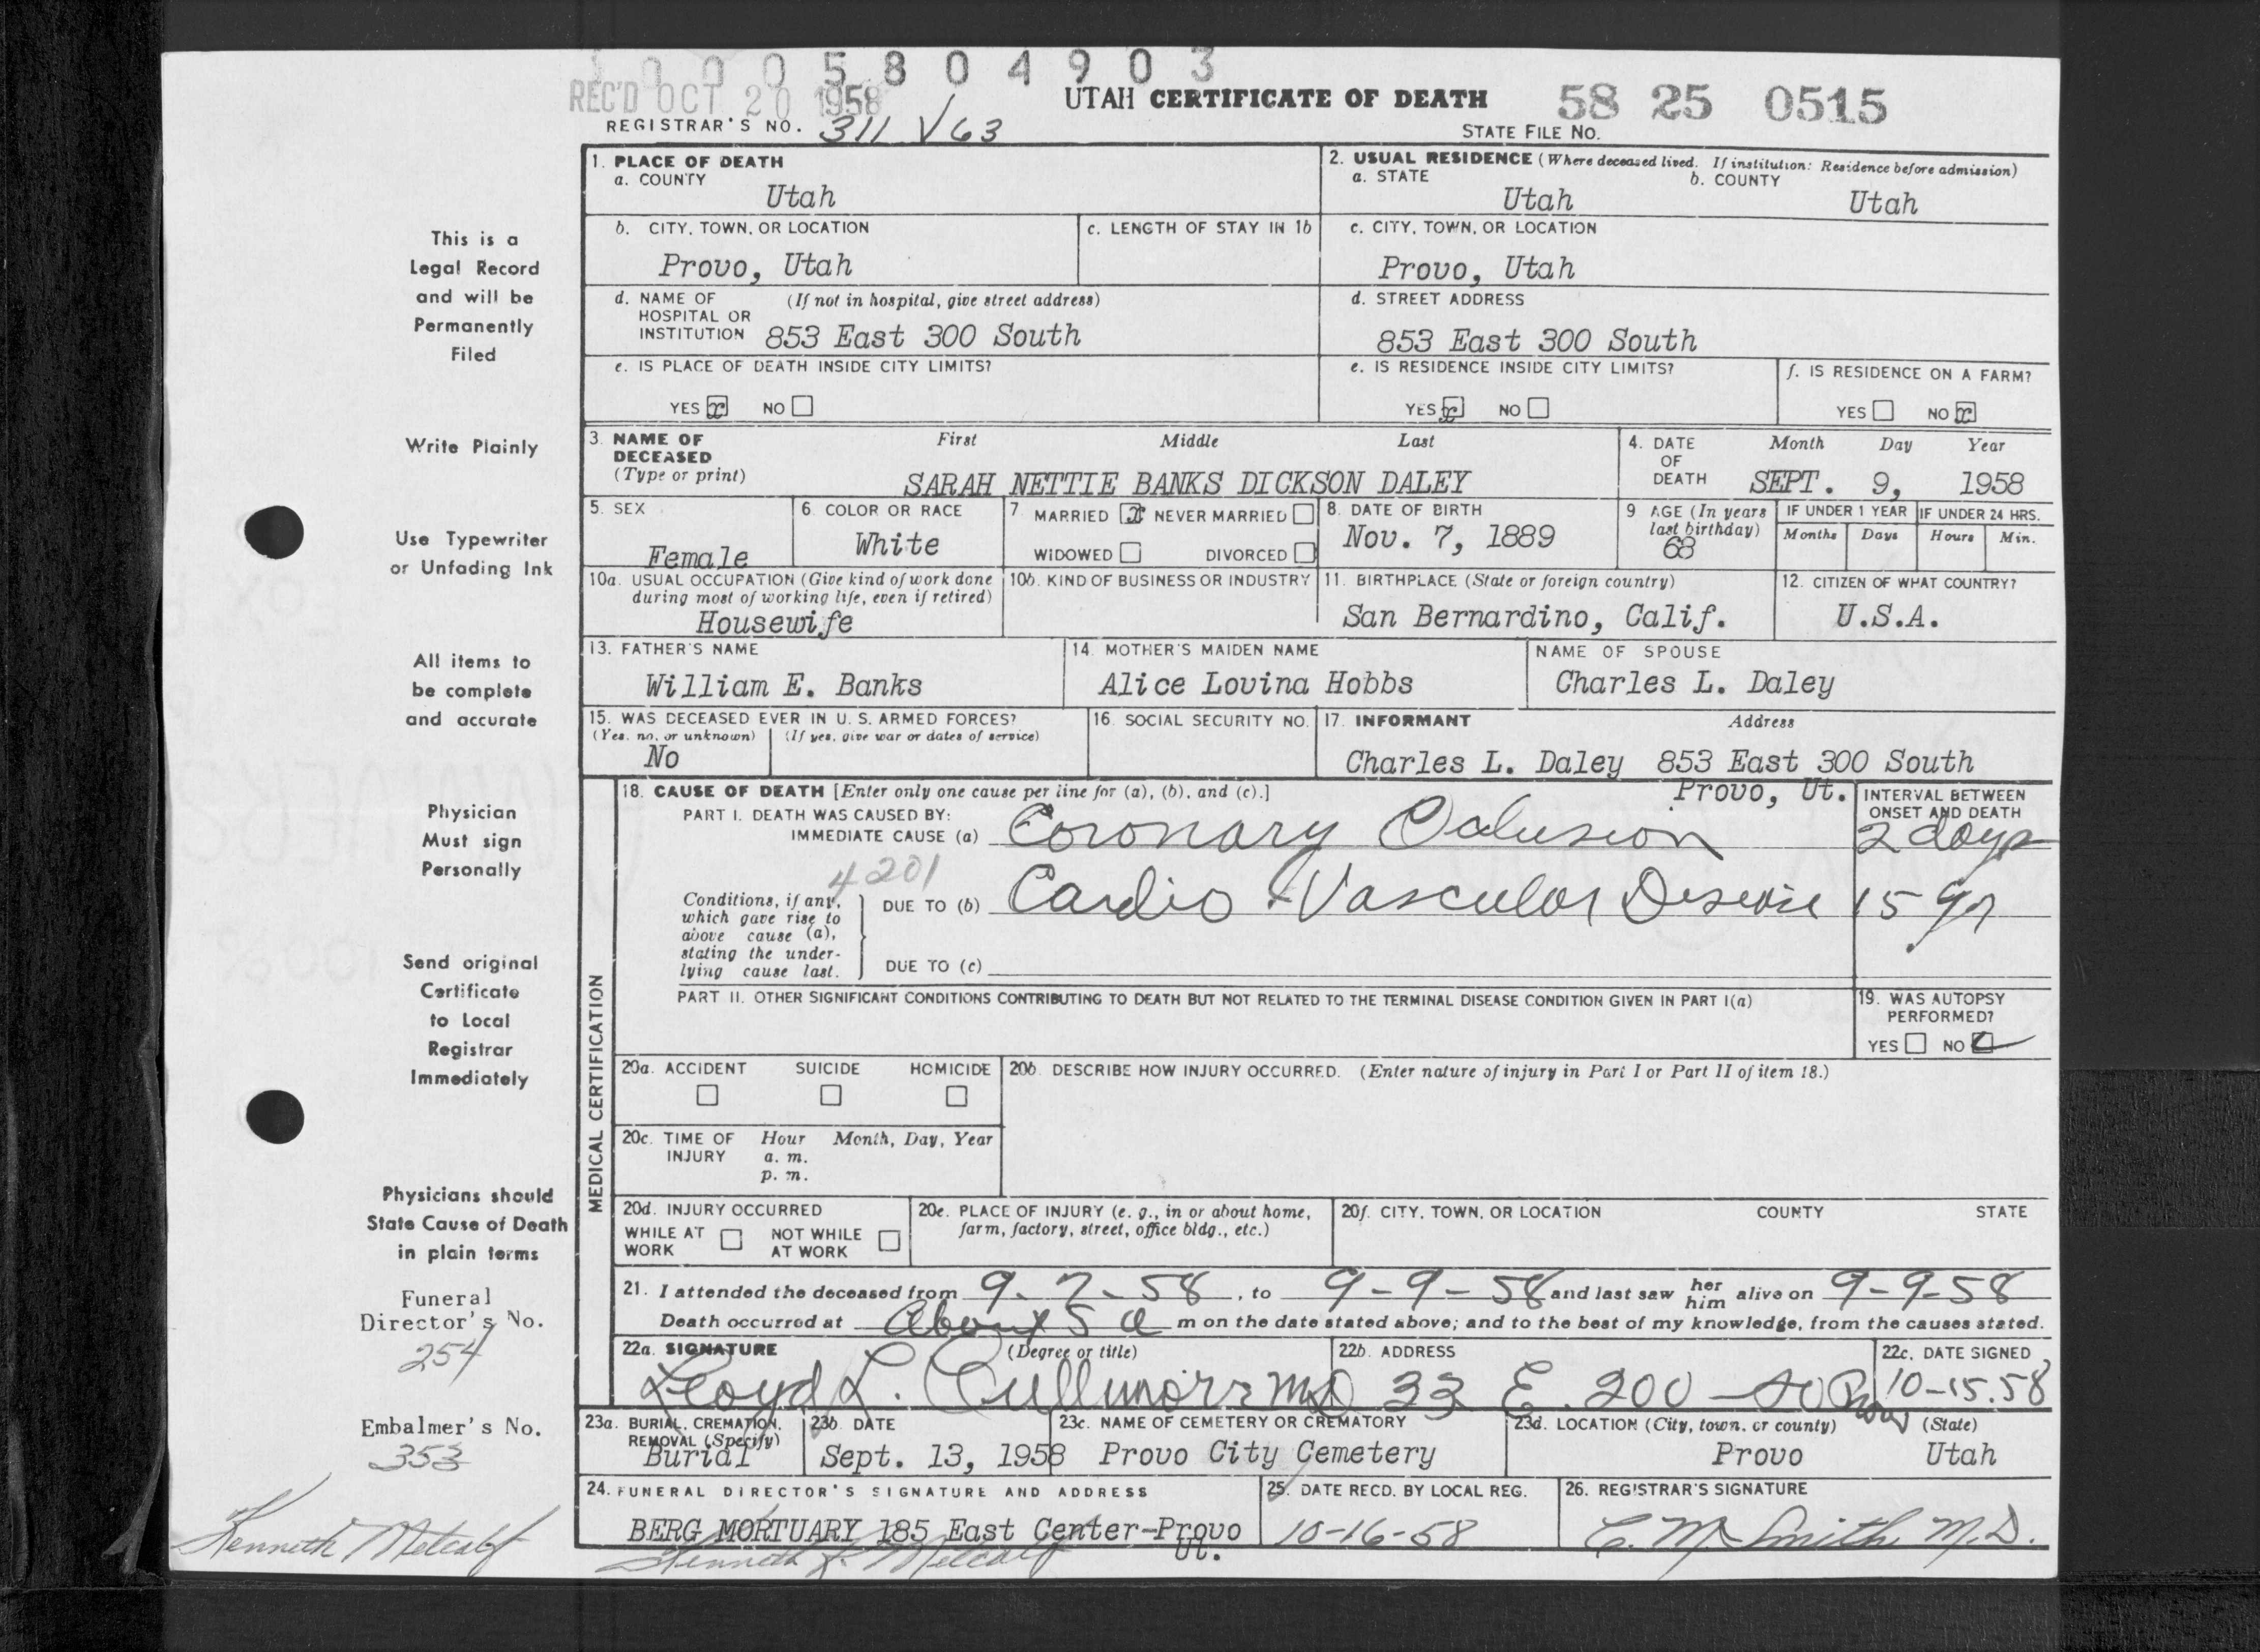 1 0 0 0 5 8 0 4 9 0 3
REC'D OCT 20 1958
UTAH CERTIFICATE OF DEATH 58 25 0515
REGISTRAR'S NO. 311 V63
STATE FILE NO.
1. PLACE OF DEATH
a. COUNTY
Utah
2. USUAL RESIDENCE (Where deceased lived. If institution: Residence before admission)
a. STATE b. COUNTY
Utah Utah
b. CITY, TOWN, OR LOCATION
Provo, Utah
c. LENGTH OF STAY IN 1b
c. CITY, TOWN, OR LOCATION
Provo, Utah
d. NAME OF (If not in hospital, give street address)
HOSPITAL OR
INSTITUTION 853 East 300 South
d. STREET ADDRESS
853 East 300 South
e. IS PLACE OF DEATH INSIDE CITY LIMITS?
YES x NO
e. IS RESIDENCE INSIDE CITY LIMITS?
YES x NO
f. IS RESIDENCE ON A FARM?
YES NO x
3. NAME OF DECEASED
(Type or print)
First Middle Last
SARAH NETTIE BANKS DICKSON DALEY
4. DATE OF DEATH
Month Day Year
SEPT. 9, 1958
5. SEX
Female
6. COLOR OR RACE
White
7. MARRIED x NEVER MARRIED
WIDOWED DIVORCED
8. DATE OF BIRTH
Nov. 7, 1889
9 AGE (In years
last birthday)
68
IF UNDER 1 YEAR IF UNDER 24 HRS.
Months Days Hours Min.
10a. USUAL OCCUPATION (Give kind of work done
during most of working life, even if retired)
Housewife
10b. KIND OF BUSINESS OR INDUSTRY
11. BIRTHPLACE (State or foreign country)
San Bernardino, Calif.
12. CITIZEN OF WHAT COUNTRY?
U.S.A.
13. FATHER'S NAME
William E. Banks
14. MOTHER'S MAIDEN NAME
Alice Lovina Hobbs
NAME OF SPOUSE
Charles L. Daley
15. WAS DECEASED EVER IN U. S. ARMED FORCES?
(Yes, no, or unknown) (If yes, give war or dates of service)
No
16. SOCIAL SECURITY NO.
17. INFORMANT Address
Charles L. Daley 853 East 300 South
Provo, Ut.
18. CAUSE OF DEATH [Enter only one cause per line for (a), (b), and (c).]
INTERVAL BETWEEN
ONSET AND DEATH
PART I. DEATH WAS CAUSED BY:
IMMEDIATE CAUSE (a) Coronary Oclusion 2 days
4201
Conditions, if any,
which gave rise to
above cause (a),
stating the under-
lying cause last.
DUE TO (b) Cardio Vascular Disease 15 yr
DUE TO (c)
PART II. OTHER SIGNIFICANT CONDITIONS CONTRIBUTING TO DEATH BUT NOT RELATED TO THE TERMINAL DISEASE CONDITION GIVEN IN PART I(a)
19. WAS AUTOPSY
PERFORMED?
YES NO
MEDICAL CERTIFICATION
20a. ACCIDENT SUICIDE HOMICIDE
20b. DESCRIBE HOW INJURY OCCURRED. (Enter nature of injury in Part I or Part II of item 18.)
20c. TIME OF INJURY
Hour Month, Day, Year
a. m.
p. m.
20d. INJURY OCCURRED
WHILE AT WORK NOT WHILE AT WORK
20e. PLACE OF INJURY (e. g., in or about home,
farm, factory, street, office bldg., etc.)
20f. CITY, TOWN, OR LOCATION COUNTY STATE
21. I attended the deceased from 9-7-58, to 9-9-58 and last saw her him alive on 9-9-58
Death occurred at About 5 a m on the date stated above; and to the best of my knowledge, from the causes stated.
22a. SIGNATURE (Degree or title)
Lloyd L. Cullimore MD
22b. ADDRESS
33 E. 200 - So Provo
22c. DATE SIGNED
10-15.58
23a. BURIAL, CREMATION,
REMOVAL (Specify)
Burial
23b. DATE
Sept. 13, 1958
23c. NAME OF CEMETERY OR CREMATORY
Provo City Cemetery
23d. LOCATION (City, town, or county) (State)
Provo Utah
24. FUNERAL DIRECTOR'S SIGNATURE AND ADDRESS
BERG MORTUARY 185 East Center-Provo
Ut.
Kenneth L. Metcalf
25. DATE RECD. BY LOCAL REG.
10-16-58
26. REGISTRAR'S SIGNATURE
C. M. Smith M.D.
This is a
Legal Record
and will be
Permanently
Filed
Write Plainly
Use Typewriter
or Unfading Ink
All items to
be complete
and accurate
Physician
Must sign
Personally
Send original
Certificate
to Local
Registrar
Immediately
Physicians should
State Cause of Death
in plain terms
Funeral
Director's No.
254
Embalmer's No.
353
Kenneth Metcalf